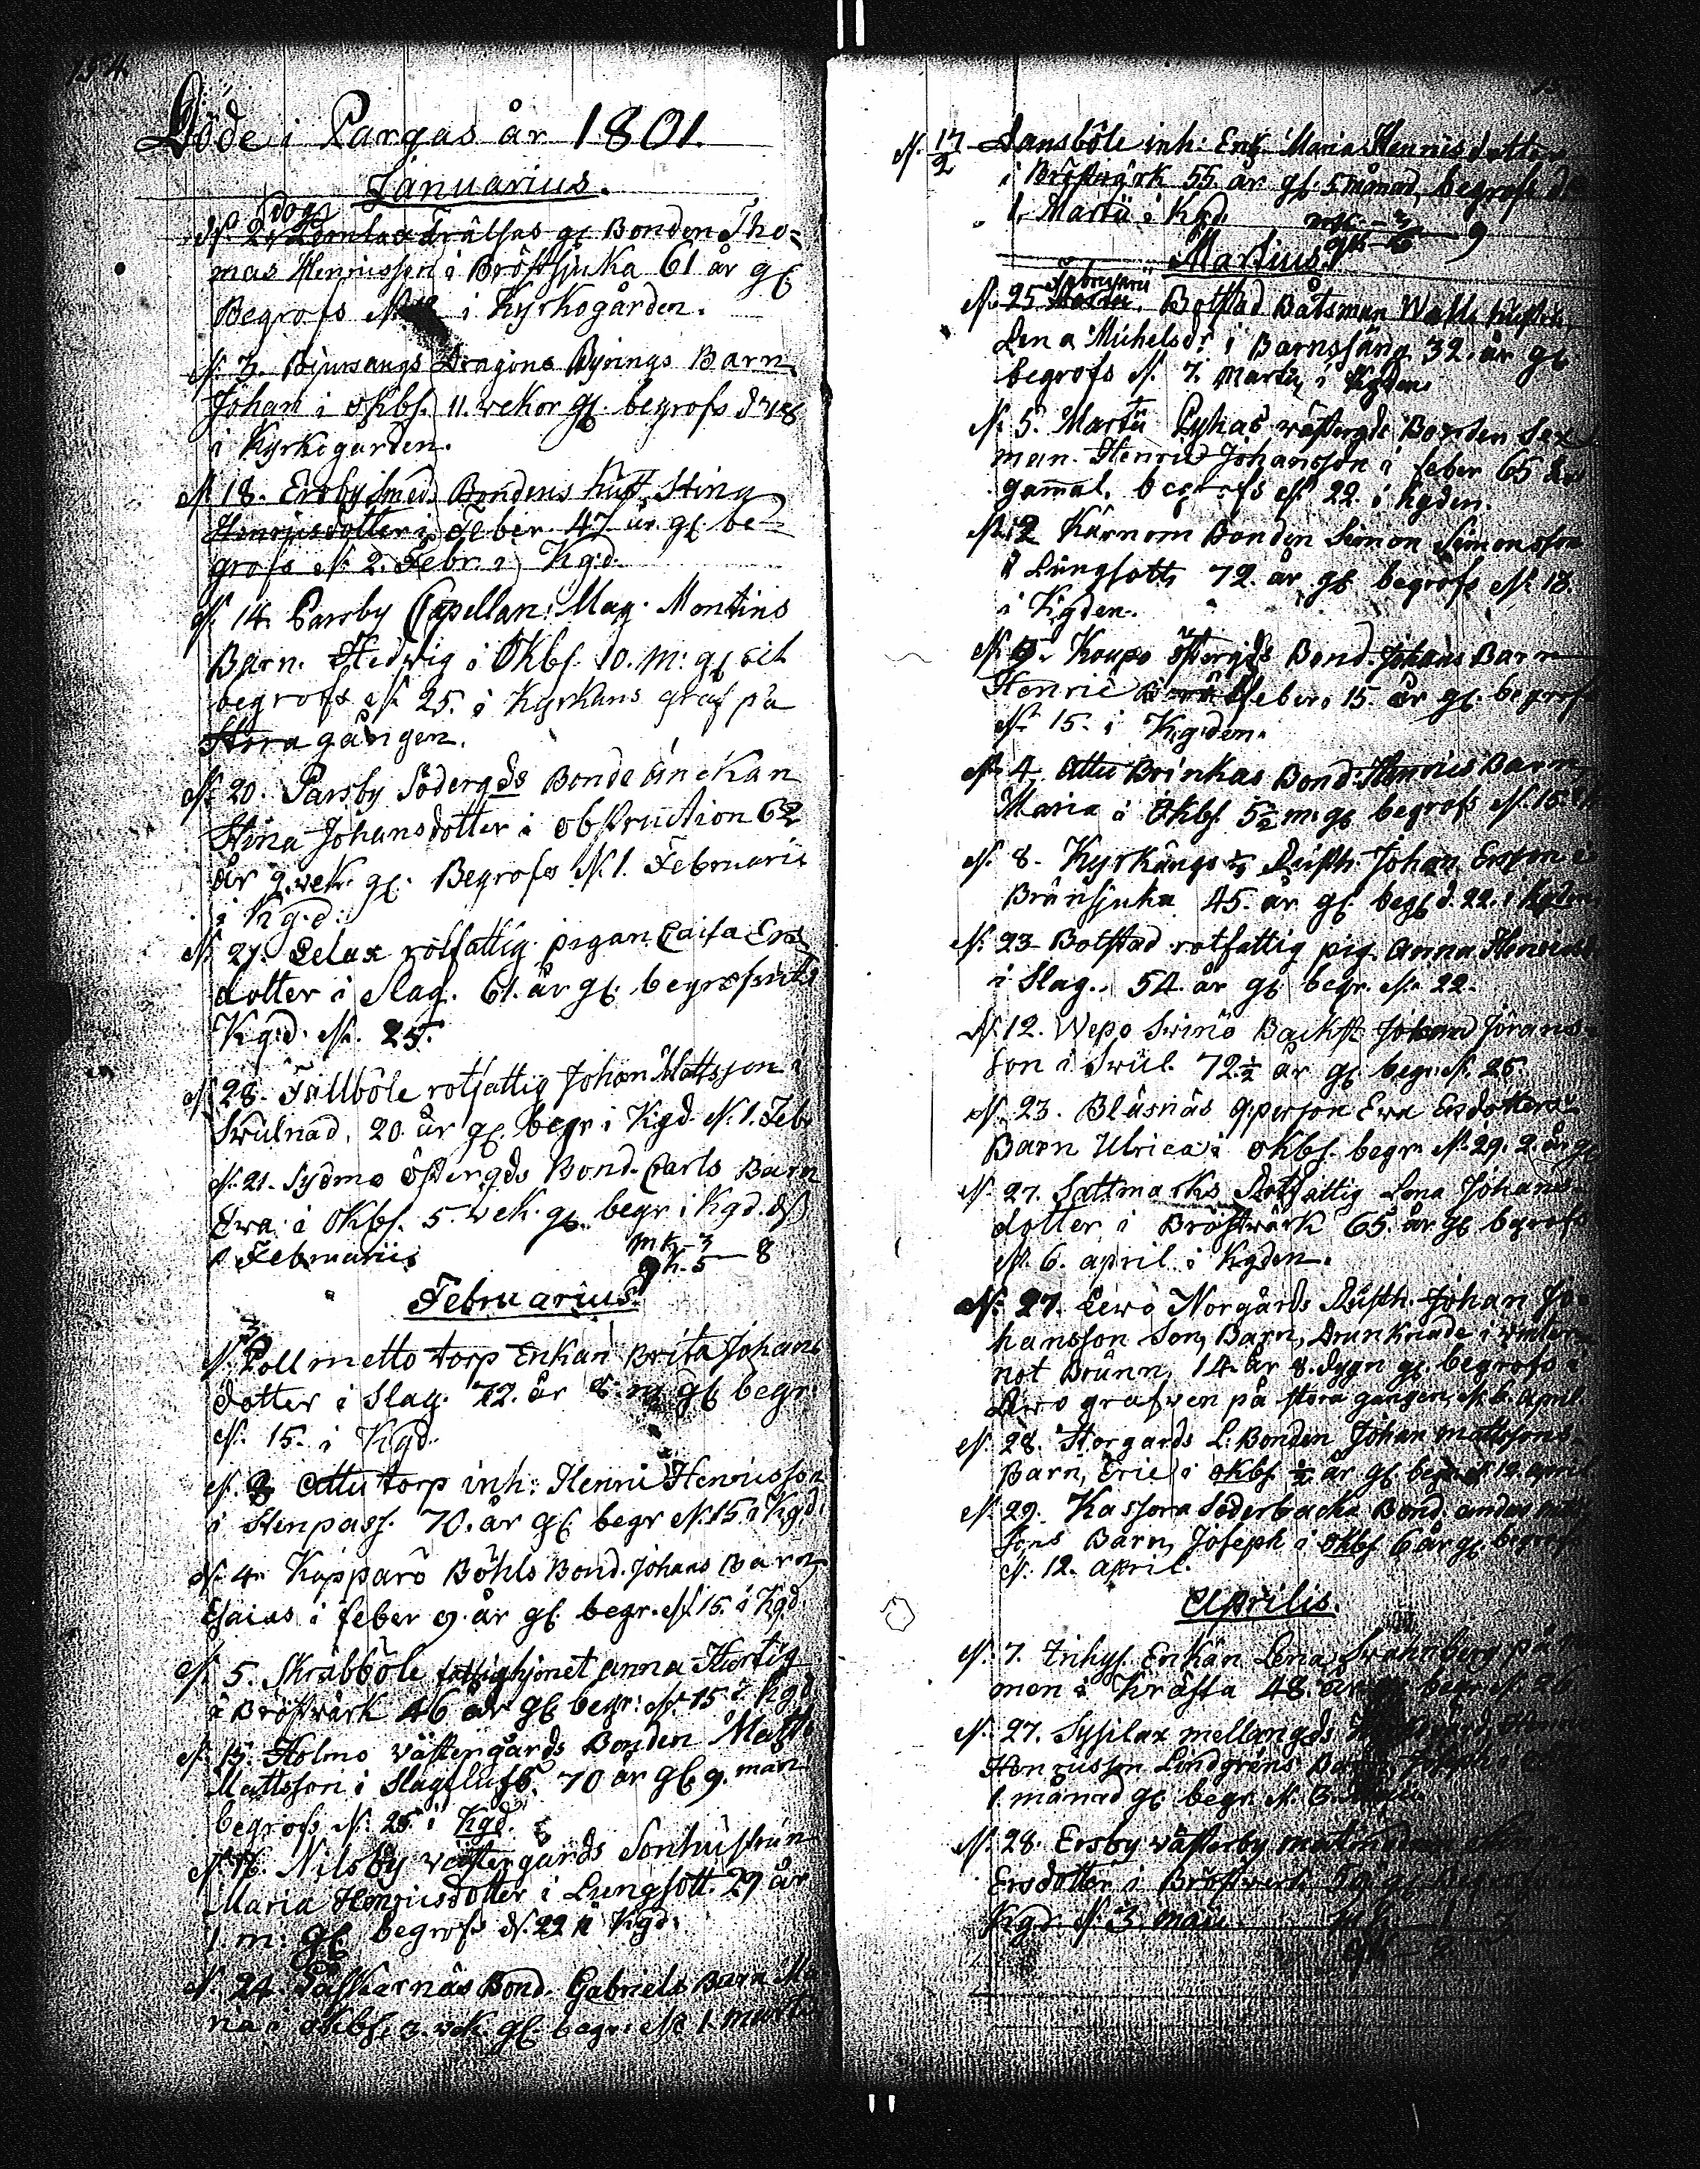 154.
Döde i Pargas år 1801.
Januarius.
dog
d. 2. Domlax Frälsgs gl Bonden Tho=
mas Henricsson i Bröstsjuka 61 år gl.
Begrofs d. i Kyrkogården.
d. 3. Bjursangs Dragons Byrings Barn
Johan i okbf. 11. wekor gl. begrofs d. 18
i Kyrkogården.
d. 18. Ersby Smeds Bondens hust. Stina
Henricsdotter i Feber 47 år gl. be-
grofs d. 2. Febr. i Kgd.
d. 14. Parsby Capellan: Mag. Montins
Barn. Hedwig i Okbf. 10. m: gl och
begrofs d. 25. i Kyrkans graf på
Stora gången.
d. 20. Parsby Södergds Bonde änckan
Stina Johansdotter i obstruction 62
år 9. wek. gl. Begrofs d. 1. Februarii
i Kgd:
d. 27. Lelax rotfattig pigan Caisa Ers
dotter i Slag. 61. år gl. begrofs uti
Kgd. d. 25.
d. 28. Fallböle rotfattig Johan Mattsson i
Swulnad, 20. år gl. begr i Kgd. d. 1. Feb
d. 21. Sydmo östergds Bond. Carls Barn
Ewa i Okbf. 5. wek. gl. begr i Kgd. d.
1 Februarii mk-3
qk. 5 — 8
Februarius
d. 3 Pollmetto torp Enkan Brita Johans
dotter i Slag. 72. år 8. m. gl begr:
d. 15. i Kgd.
d. 3 Attu torp inh: Henric Henricsson
i Stenpass. 70. år gl. begr d. 15. i Kgd.
d. 4. Kopparö Böhls Bond. Johans Barn
Esaias i feber 9. år gl. begr. d. 15. i Kgd.
d. 5. Skräbböle fattighjonet Anna Hurtig
i Bröstwärk 46 år gl begr: d. 15. i Kgd
d. 15. Holmo Västergårds Bonden Matts
Mattsson i Slagfluss. 70 år gl 9. mån
begrofs d. 25 i Kgd.
d. 16. Nilsby västergårds Sonhustrun
Maria Henricsdotter i Lungsott. 29 år
1. m: gl begrofs d. 22 i Kgd:
d. 24. Bond. Gabriels Barn Ma
ria i okbf. 3. wek. gl. begr. d. 1. martii
d. 17/2 Dansböle inh: Enk. Maria Henricsdotter
i Bröstwärk 55. år gl. 5. månad, begrofs d
1. Martii i Kgd. mk – 3
qk – 6 — 9
Martius.
Februarii
d. 25 Botstad Båtsman Walls hustru
Lena Michelsd: i Barnsäng 32. år gl
begrofs d. 7. Martii, i Kgden.
d. 5. Martii Pyhas wästergds Bonden Sex
man. Henric Johansson i feber 65 år
gammal. begrofs d. 22. i kgden.
d. 12 Kärnom Bonden Simon Simonsson
i Lungsott, 72. år gl. begrofs d. 18.
i Kgden.
d. 9. Koupo östergds Bond. Johans Barn
Henric i feber, 15. år gl. begrofs
d. 15. i Kgden.
d. 4. Attu Brinkas Bond. Henrics Barn
Maria i Okbf 5½ m. gl begrofs d. 15.
d. 8. Kyrkängs ⅓ Rusth. Johan Ersson i
Brånsjuka 45. år gl. begl d. 22. i Kgden.
d. 23 Botstad rotfattig pig. Anna Henrics
i Slag. 54. år gl begr. d. 22.
d. 12. Wepo Swinö Backst. Johan Jörans
son i Swul. 72½ år gl. begr. d. 25.
d. 23. Bläsnäs qperson Ewa Ersdotters
Barn Ulrica i okbf. begr. d. 29. 2. år gl
d. 27. Sattmarks Rotfattig Lena Johans
dotter i Bröstwärk 65. år gl bgrofs
d. 6. april i Kgden.
d. 27. Lewo Norgårds Rusth. Johan Jo
hansson Son, Barn, Drunknade i winter
not Brunn, 14. år 8. dygn gl. begrofs i
Lewo grafwen på stora gången, d. 6. april.
d. 28. Storgards L: Bonden Johan Mattssons
Barn, Eric i okbf ½ år gl begr d 12. april
d. 29. Kassora Söderbacka Bond. anders
sons Barn, Joseph i okbf 6 år gl. begrofs
d. 12. april.
Aprilis.
d. 7. Enkan Lena Swahnberg på
mon i Kräfta 48. år begr d. 26
d. 27. Sysilax mellangds
Henricsson Lindgrens Barn, Joseph i
1. månad gl. begr. d. 3.
d. 28. Ersby västerby
Ersdotter i Bröstwerk,
Kgd. d. 3. Maii. 3